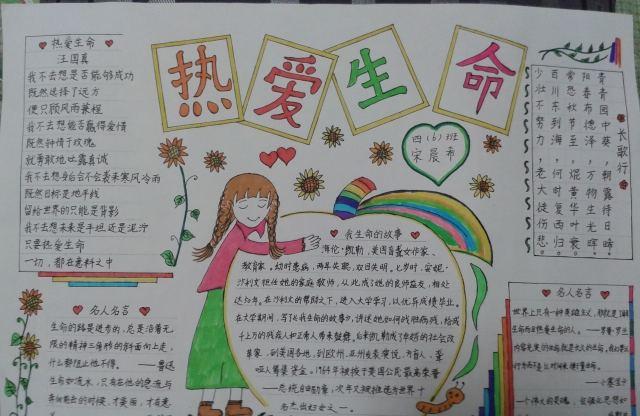 热爱生命
四(6)班
宋晨希
热爱生命
汪国真
我不去想是否能够成功
既然选择了远方
便只顾风雨兼程
我不去想能否赢得爱情
既然钟情于玫瑰
就勇敢地吐露真诚
我不去想身后会不会袭来寒风冷雨
既然目标是地平线
留给世界的只能是背影
我不去想未来是平坦还是泥泞
只要热爱生命
一切，都在意料之中
长歌行
青青园中葵，朝露待日晞
阳春布德泽，万物生光辉
常恐秋节至，焜黄华叶衰
百川东到海，何时复西归
少壮不努力，老大徒伤悲
我生命的故事
海伦·凯勒，美国盲聋女作家、
教育家。幼时患病，两耳失聪，双目失明。七岁时，安妮·
沙利文担任她的家庭教师，从此成了她的良师益友，相处
达50年。在沙利文的帮助下，进入大学学习，以优异成绩毕业。
在大学期间，写了《我生命的故事》，讲述她如何战胜病残，给成
千上万的残疾人和正常人带来鼓舞。后来凯勒成了卓越的社会改
革家，到美国各地，到欧州、亚州发表演说，为盲人、聋
哑人筹集资金。1964年被授予美国公民最高荣誉
——总统自由勋章，次年又被推选为世界十
名杰出妇女之一。
名人名言
生命的路是进步的，总是沿着无
限的精神三角形的斜面向上走，
什么都阻止他不得。——鲁迅
生命如流水，只有在他的急流与
奔向前去的时候，才美丽，才有意
名人名言
世界上只有一种英雄主义，那就是了解
生命而且热爱生命的人。——罗曼·罗兰
——小塞涅卡